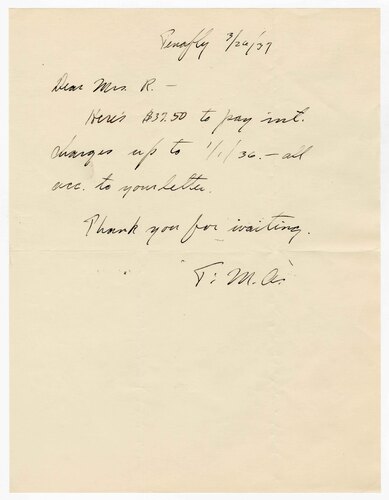 Tenafly 3/26/37
Dear Mrs. R. —
Here's $37.50 to pay int.
charges up to 1/1/36. — all
acc. to your letter.
Thank you for waiting.
T. M.